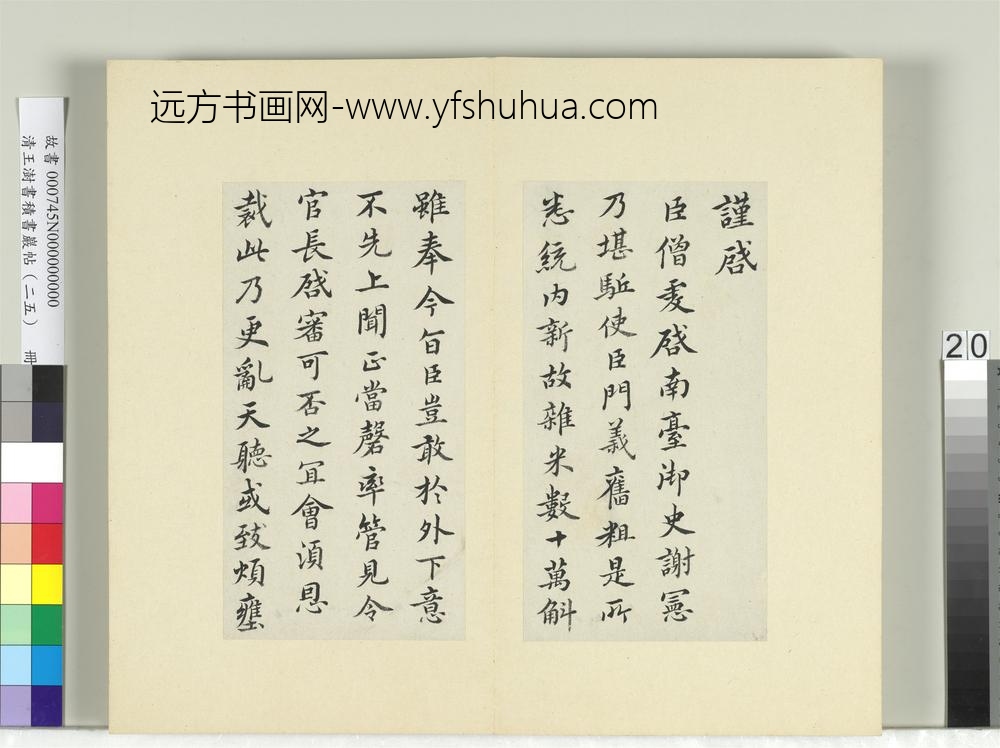 远方书画网-www.yfshuhua.com
謹啓
臣僧虔啓南臺御史謝憲
乃堪駈使臣門義舊粗是所
悉統内新故雜米數十萬斛
雖奉令旨臣豈敢於外下意
不先上聞正當罄率管見令
官長啓審可否之冝會須恩
裁此乃更亂天聽或致煩壅
故書 000745N000000000
清王澍書積書巖帖(二五) 冊
20